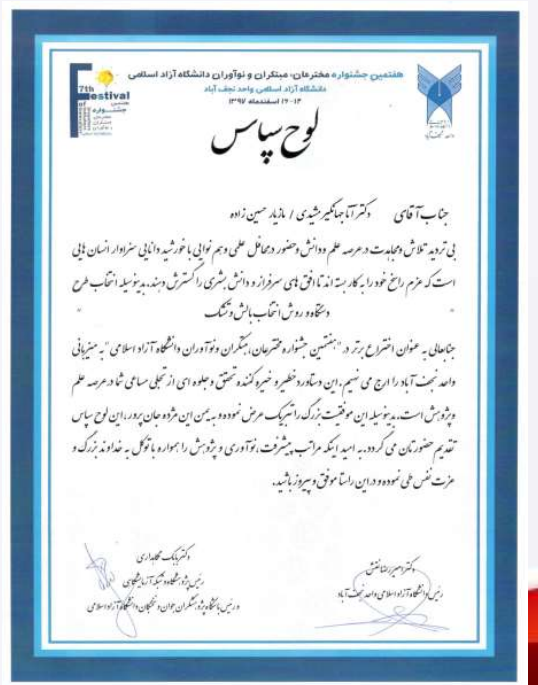 هفتمین جشنواره مخترعان، مبتکران و نوآوران دانشگاه آزاد اسلامی
دانشگاه آزاد اسلامی واحد نجف آباد
۱۴-۱۶ اسفندماه ۱۳۹۷
7th
Festival
هفتمین
جشنواره
مخترعان
مبتکران
و نوآوران
لوح سپاس
جناب آقای دکتر آتا جهانگیر مشیدی / مازیار حسین زاده
بی تردید تلاش و مجاهدت در عرصه علم و دانش و حضور در محافل علمی و هم نوایی با خورشید دانایی سزاوار انسان هایی
است که عزم راسخ خود را به کار بسته اند تا افق های سرفراز و دانش بشری را گسترش دهند. بدینوسیله انتخاب طرح
" دستگاه و روش انتخاب بالش و تشک "
جنابعالی به عنوان اختراع برتر در "هفتمین جشنواره مخترعان، مبتکران و نوآوران دانشگاه آزاد اسلامی" به میزبانی
واحد نجف آباد را ارج می نهیم. این دستاورد خطیر و خیره کننده تحقق و جلوه ای از تجلی مساعی شما در عرصه علم
و پژوهش است. بدینوسیله این موفقیت بزرگ را تبریک عرض نموده و به یمن این مژده جان پرور، این لوح سپاس
تقدیم حضورتان می گردد. به امید اینکه مراتب پیشرفت، نوآوری و پژوهش را همواره با توکل به خداوند بزرگ و
عزت نفس طی نموده و در این راستا موفق و پیروز باشید.
دکتر امیررضا نقش
رئیس دانشگاه آزاد اسلامی واحد نجف آباد
دکتر بابک نگاهداری
رئیس پژوهشگاه و شبکه آزمایشگاهی
و رئیس باشگاه پژوهشگران جوان و نخبگان دانشگاه آزاد اسلامی